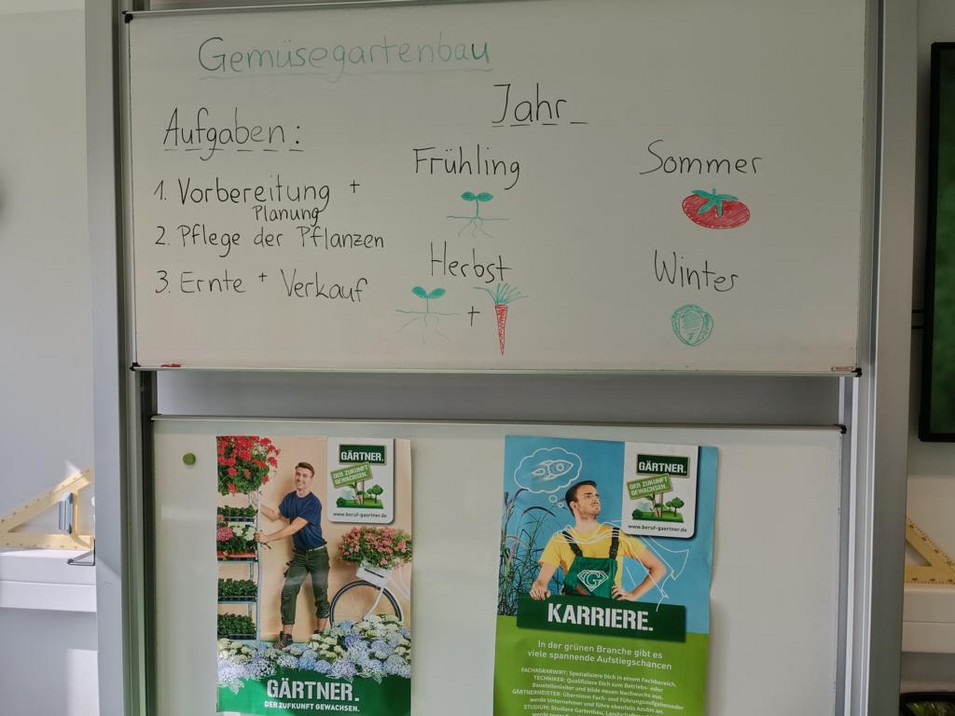 Gemüsegartenbau
Aufgaben:
1. Vorbereitung +
Planung
2. Pflege der Pflanzen
3. Ernte + Verkauf
Jahr
Frühling
Sommer
Herbst
+
Winter
GÄRTNER.
DER ZUKUNFT
GEWACHSEN.
www.beruf-gaertner.de
GÄRTNER.
DER ZUKUNFT GEWACHSEN.
GÄRTNER.
DER ZUKUNFT
GEWACHSEN.
www.beruf-gaertner.de
G
KARRIERE.
In der grünen Branche gibt es
viele spannende Aufstiegschancen
FACHAGRARWIRT: Spezialisiere Dich in einem Fachbereich.
TECHNIKER: Qualifiziere Dich zum Betriebs- oder
Baustellenleiter und bilde neuen Nachwuchs aus.
GÄRTNERMEISTER: Übernimm Fach- und Führungsaufgaben
werde Unternehmer und führe ebenfalls Azubis an.
STUDIUM: Studiere Gartenbau,